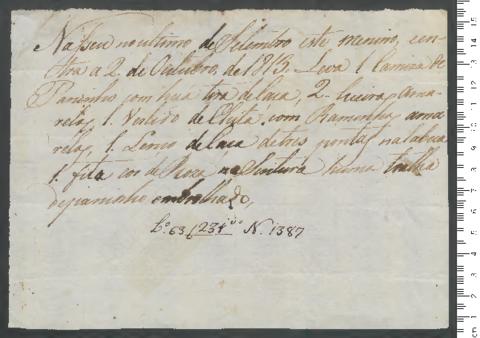 Nasseu no ultimo de Setembro este menino, en-
tra a 2 de Outubro, de 1813. Leva 1 Camiza de
Paninho com hua tira de caça, 2. Cueiros ama-
relos, 1. Vestido de Chita, com Raminhos ama-
relos, 1. Lenço de Caça de tres pontas na cabeça
1. fita cor de Roza na Sintura huma toalha
de paninho embrolhado,
Lº 63 f 234 Nº 1387
cm 1 2 3 4 5 6 7 8 9 10 11 12 13 14 15